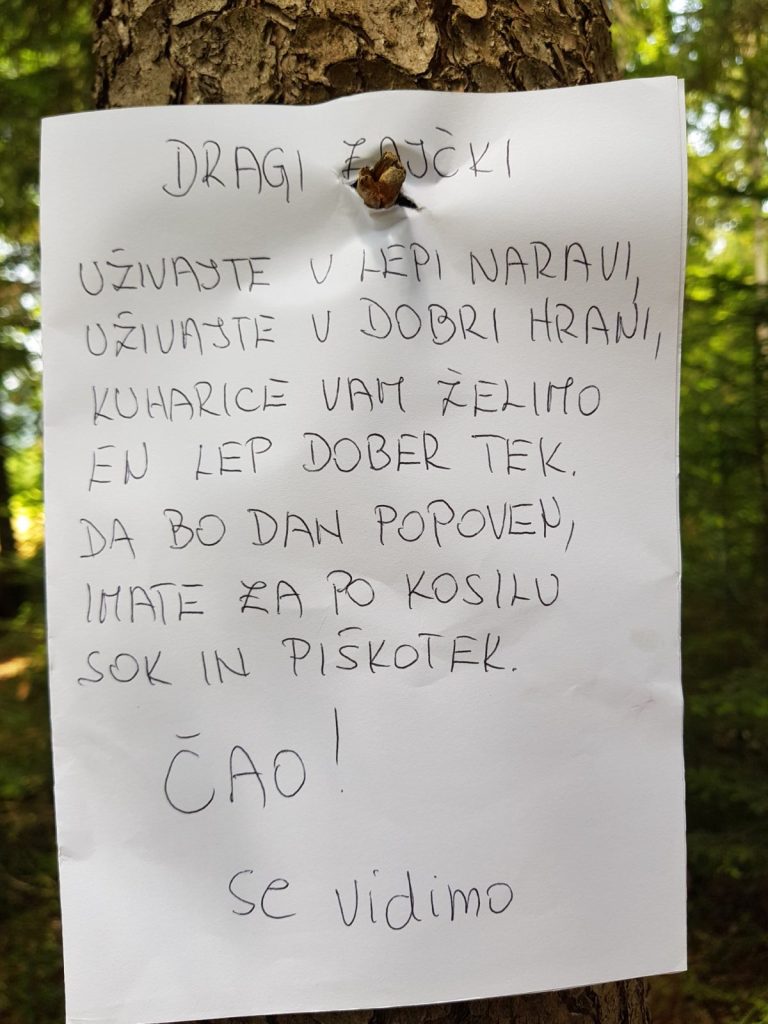 DRAGI ZAJČKI
UŽIVAJTE V LEPI NARAVI,
UŽIVAJTE V DOBRI HRANI,
KUHARICE VAM ŽELIMO
EN LEP DOBER TEK.
DA BO DAN POPOVEN,
IMATE ZA PO KOSILU
SOK IN PIŠKOTEK.
ČAO!
se vidimo